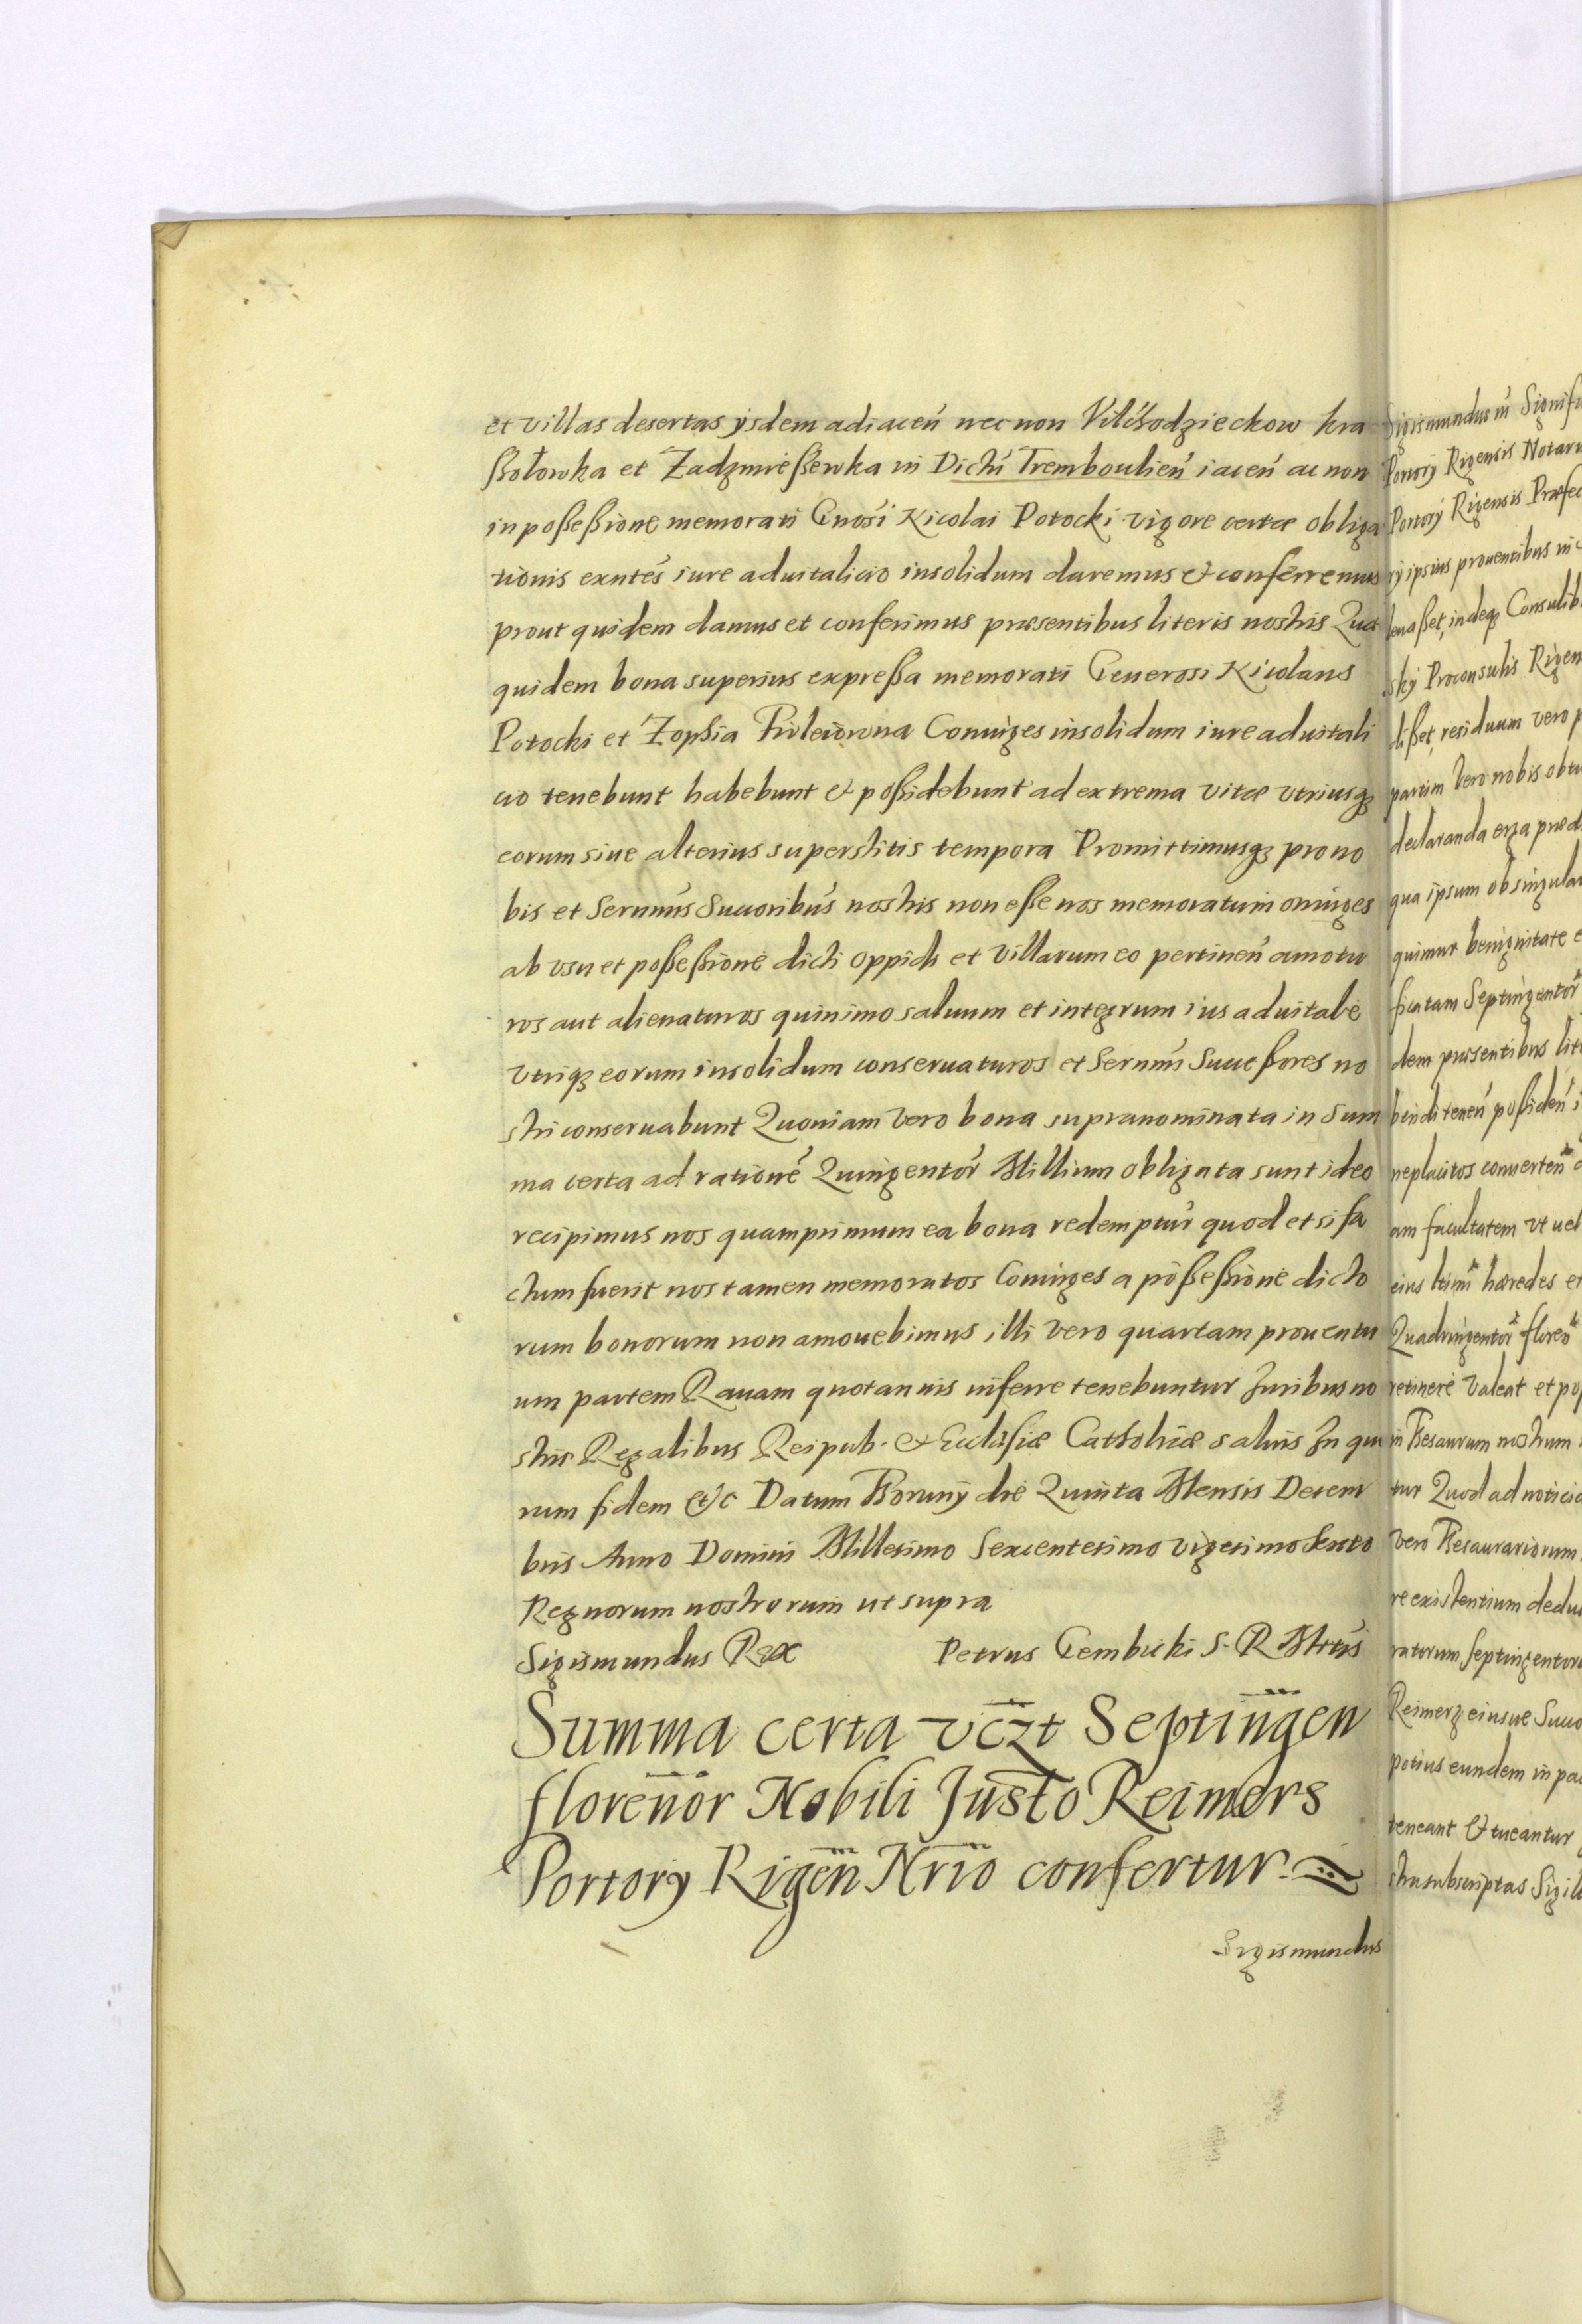 et villas desertas ysdem adiacen̄ nec non Vilchodzieckow kra
ßołowka et Zadzmießewka in Dictū Tremboulien̄ iacen̄ ac non
in poßeßione memorati Gnosi Nicolai Potocki vigore certæ obliga
tionis exntēs iure aduitalicio insolidum daremus & conferremus
prout quidem damus et conferimus præsentibus literis nostris Quæ
quidem bona superius expreßa memorati Generosi Nicolaus
Potocki et Zophia Coniuges insolidum iure aduitali
cio tenebunt habebunt & poßidebunt ad extrema vitæ vtriusqȝ
eorum siue alterius superstitis tempora Promittimusqȝ pro no
bis et Sernmīs Succoribūs nostris non eße nos memoratum oniuges
ab vsu et poßeßione dicti oppidi et villarum eo pertinen̄ amotu
ros aut alienaturos quinimo saluum et integrum ius aduitale
vtriqȝ eorum insolidum conseruaturos et Sernmī Succeßores no
stri conseruabunt Quoniam vero bona supranominata in Sum
ma certa ad rationē Quingentōr Millium obligata sunt ideo
recipimus nos quamprimum ea bona redempturʳ quod et si fa
ctum fuerit nos tamen memoratos Coniuges a poßeßione dicto
rum bonorum non amouebimus illi vero quartam prouentu
um partem Rauam quotannis inferre tenebuntur Juribus no
stris Regalibus Reipub. & Ecclesiæ Catholicæ saluis In quo
rum fidem etc Datum Thoruny die Quinta Mensis Decem
bris Anno Domini Millesimo Sexcentesimo vigesimo Sexto
Regnorum nostrorum ut supra
Sigismundus Rex Petrus Gembicki S. R Mttis
Summa certa vczt Septingen
florenōr Nobili Justo Reimers
Portory Rigen̄ Nrio confertur.
Sigismundus
Sigismundus
Portory Rigensis
Portory Rigensis
ry ipsius prouentibus in
Consulib
Proconsulis
dißet, residuum vero
partim vero nobis
declaranda erga
qua ipsum ob
quimur benignitate
ficatam Septingentor
dem præsentibus
bendi tenen̄ poßiden̄
neplacitos conuerten̄
am facultatem vt uel
eius ltimi hæredes et
Quadringentor floren
retinere valeat et
in Thesaurum nostrum
tur Quod ad
vero Thesaurariorum
re existentium
ratorum septingentor
Reimerz eiusue
potius eundem in
teneant & tueantur
subscriptas